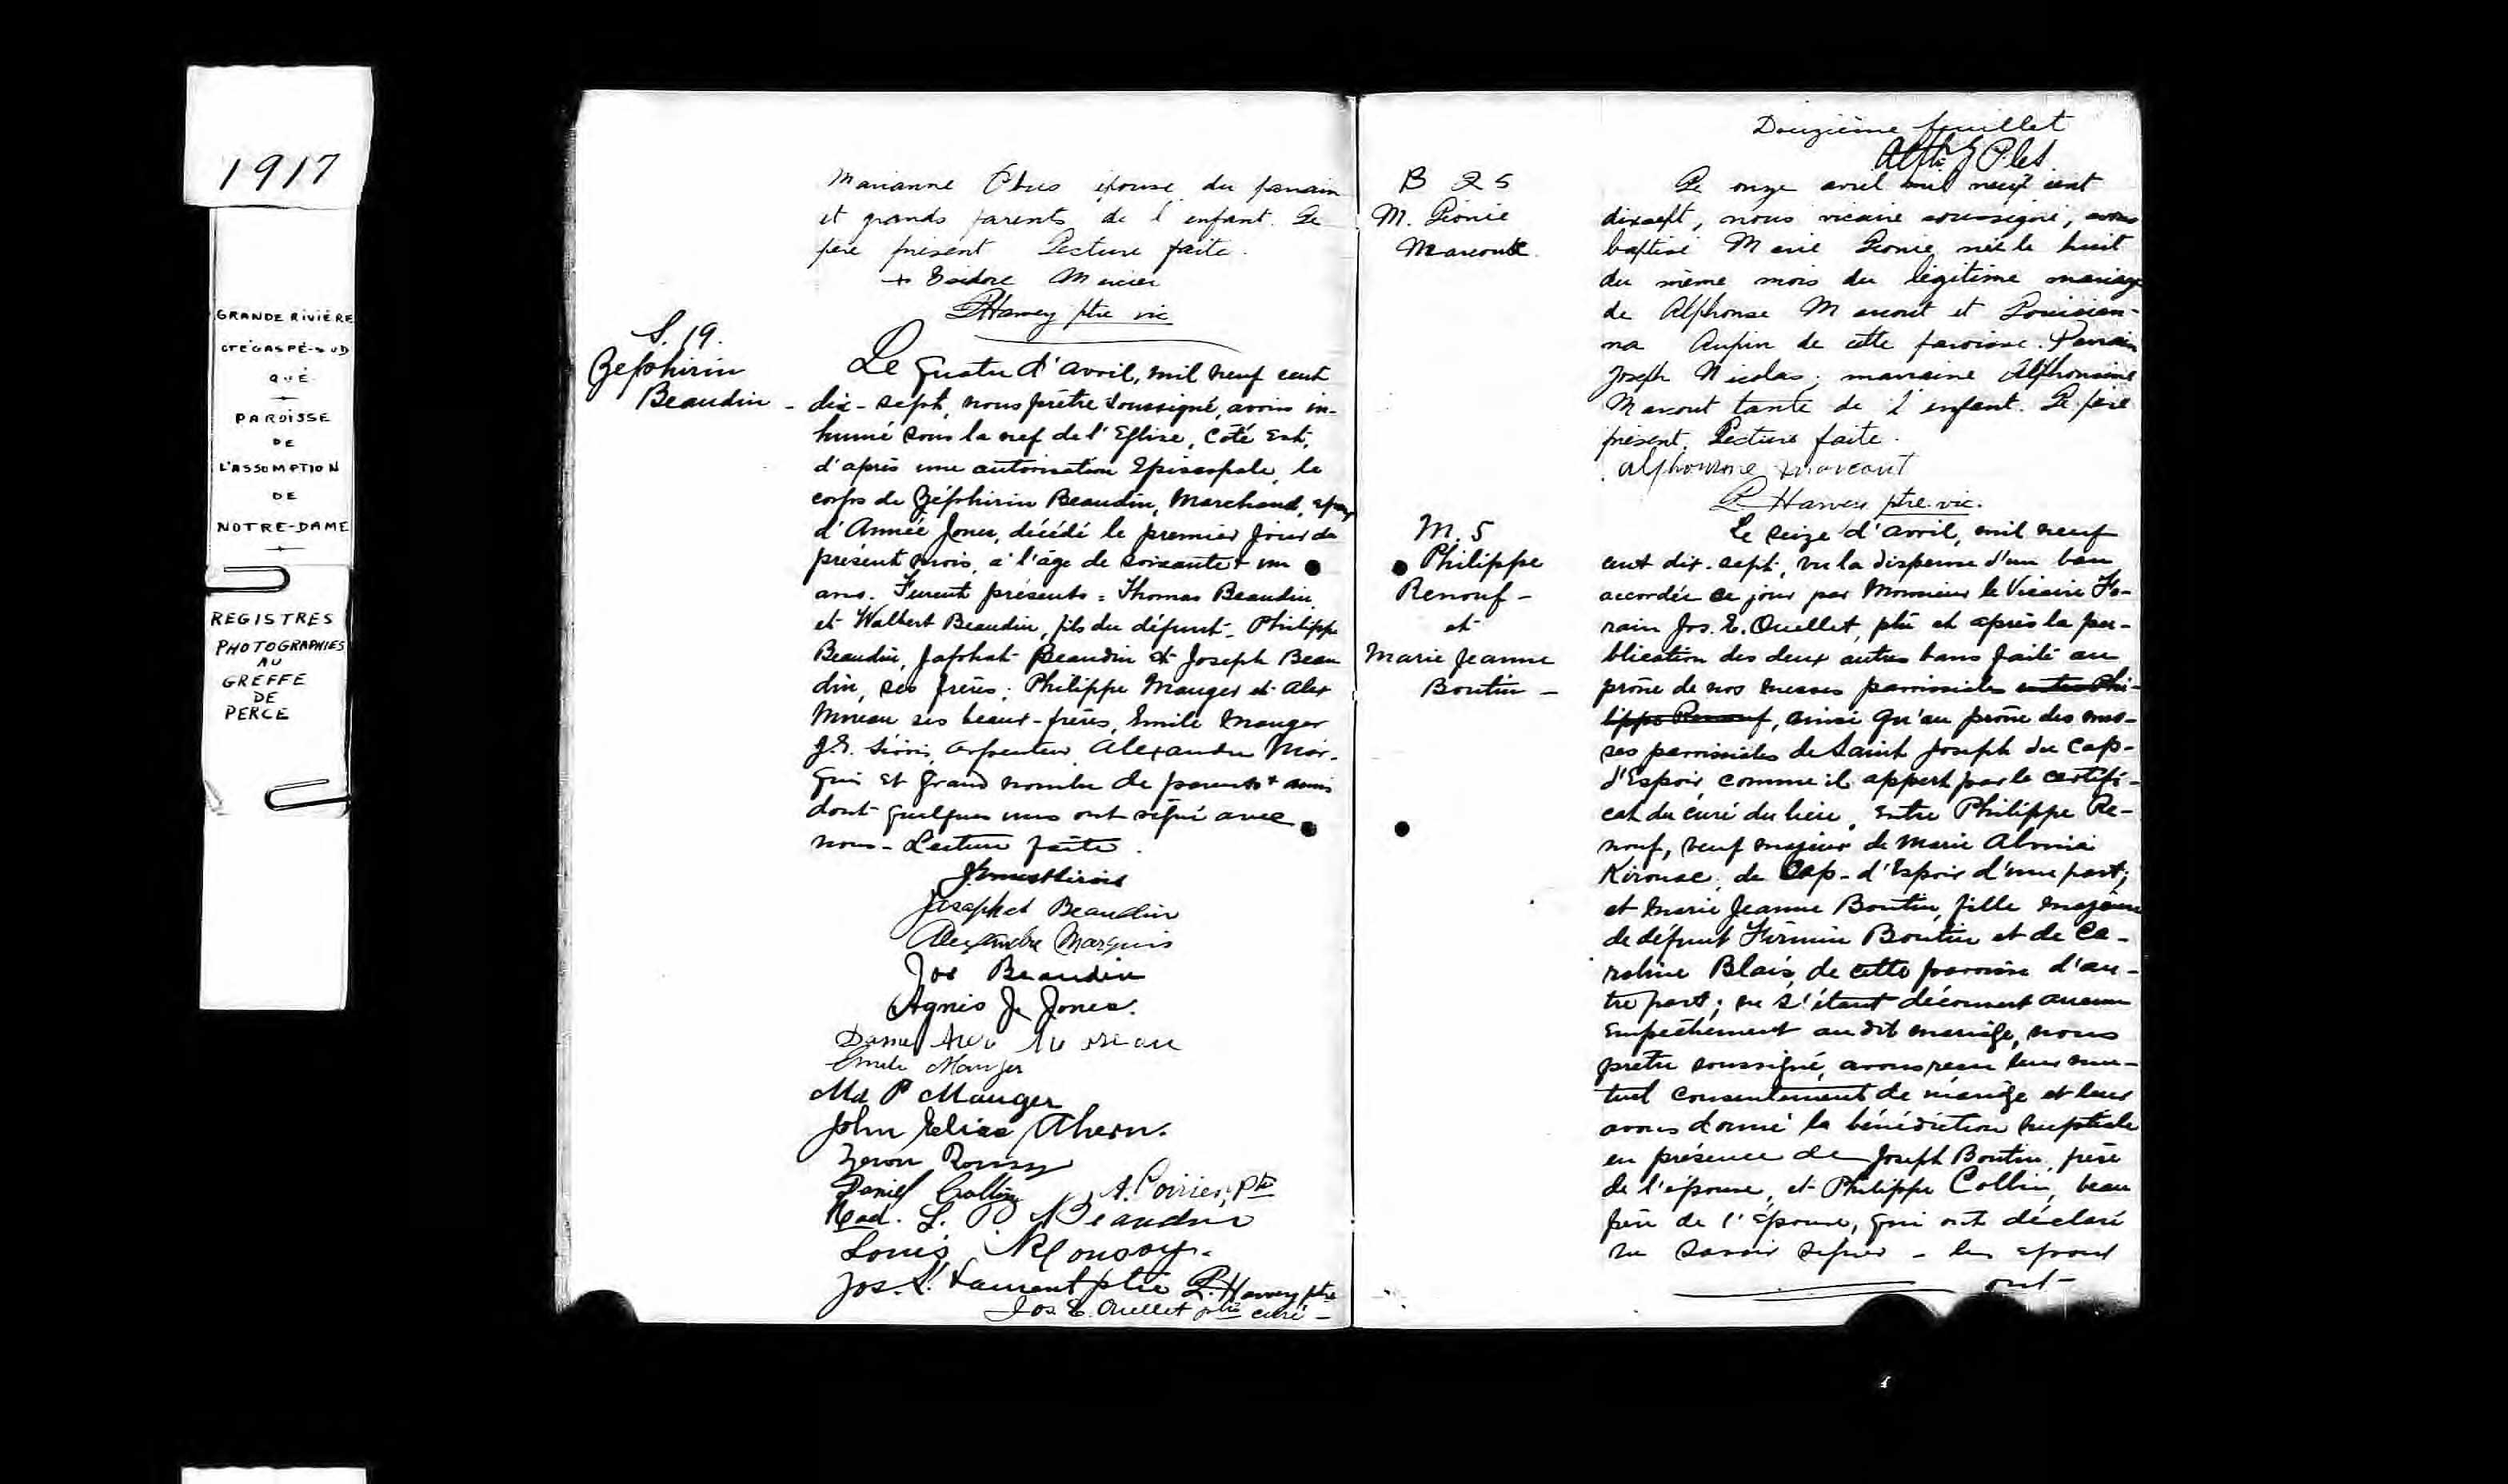 1917
GRANDE RIVIÈRE
CTÉ GASPÉ-SUD
QUÉ
PAROISSE
DE
L'ASSOMPTION
DE
NOTRE-DAME
REGISTRES
PHOTOGRAPHIES
AU
GREFFE
DE
PERCE
Marianne épouse du parrain
et grands parents de l'enfant. Le
père présent Lecture faite.
+ Isidore Mercier
P Harvey ptre vic
S. 19.
Zéphirin
Beaudin -
Le quatre d'avril, mil neuf cent
dix-sept, nous prêtre soussigné, avons in-
humé sous la nef de l'Eglise, Côté Est,
d'après une autorisation Episcopale, le
corps de Zéphirin Beaudin, Marchand, époux
d'Année Jones, décédé le premier jour du
présent mois, à l'âge de soixante + un
ans. Furent présents : Thomas Beaudin
et Walbert Beaudin, fils du défunt - Philippe
Beaudin, Japhat Beaudin et Joseph Beau
din, ses frères; Philippe Mauger et Alex
Moreau ses beaux-frères, Emile Mauger
J.E. Sirois, arpenteur, Alexandre Mar-
quis et grand nombre de parents + amis
dont quelques uns ont signé avec
nous - Lecture faite.
Josaphat Beaudin
Alexandre Marquis
Jos Beaudin
Agnes J. Jones.
Dame Alex Moreau
Emile Mauger
Md P Mauger
John Elias Ahern.
Daniel A. Poirier, Ptre
Mad. L. Beaudin
Louis
Jos. St Laurent ptre P. Harvey ptre
Jos E. Ouellet ptre curé -
Douzième feuillet
B 25
M. Léonie
Marcoux
Le onze avril mil neuf cent
dixsept, nous vicaire soussigné, avons
baptisé Marie Léonie née le huit
du même mois du légitime mariage
de Alphonse Marcout et Louisian-
na Aupin de cette paroisse. Parrain
Joseph Nicolas; marraine Alphonsine
Marcout tante de l'enfant. Le père
présent. Lecture faite.
Alphonsine Marcout
P Harvey ptre. vic.
M. 5
Philippe
Renouf -
et
Marie Jeanne
Boutin -
Le seize d'avril, mil neuf
cent dix-sept, vu la dispense d'un ban
accordée ce jour par Monsieur le Vicaire Fo-
rain Jos. E. Ouellet, ptre et après la pu-
blication des deux autres bans faite au
prône de nos messes paroissiales entre Phi-
lippe Renouf, ainsi qu'au prône des mes-
ses paroissiales de Saint Joseph du Cap-
d'Espoir, comme il appert par le certifi-
cat du curé du lieu, entre Philippe Re-
nouf, veuf majeur de Marie
Kirouac, de Cap-d'Espoir d'une part;
et Marie Jeanne Boutin, fille majeure
de défunt Firmin Boutin et de Ca-
roline Blais, de cette paroisse d'au-
tre part; ne s'étant découvert aucun
empêchement au dit mariage, nous
prêtre soussigné, avons reçu leur mu-
tuel consentement de mariage et leur
avons donné la bénédiction nuptiale
en présence de Joseph Boutin, frère
de l'épouse, et Philippe Collin, beau
père de l'épouse, qui ont déclaré
ne savoir signer - les époux
ont